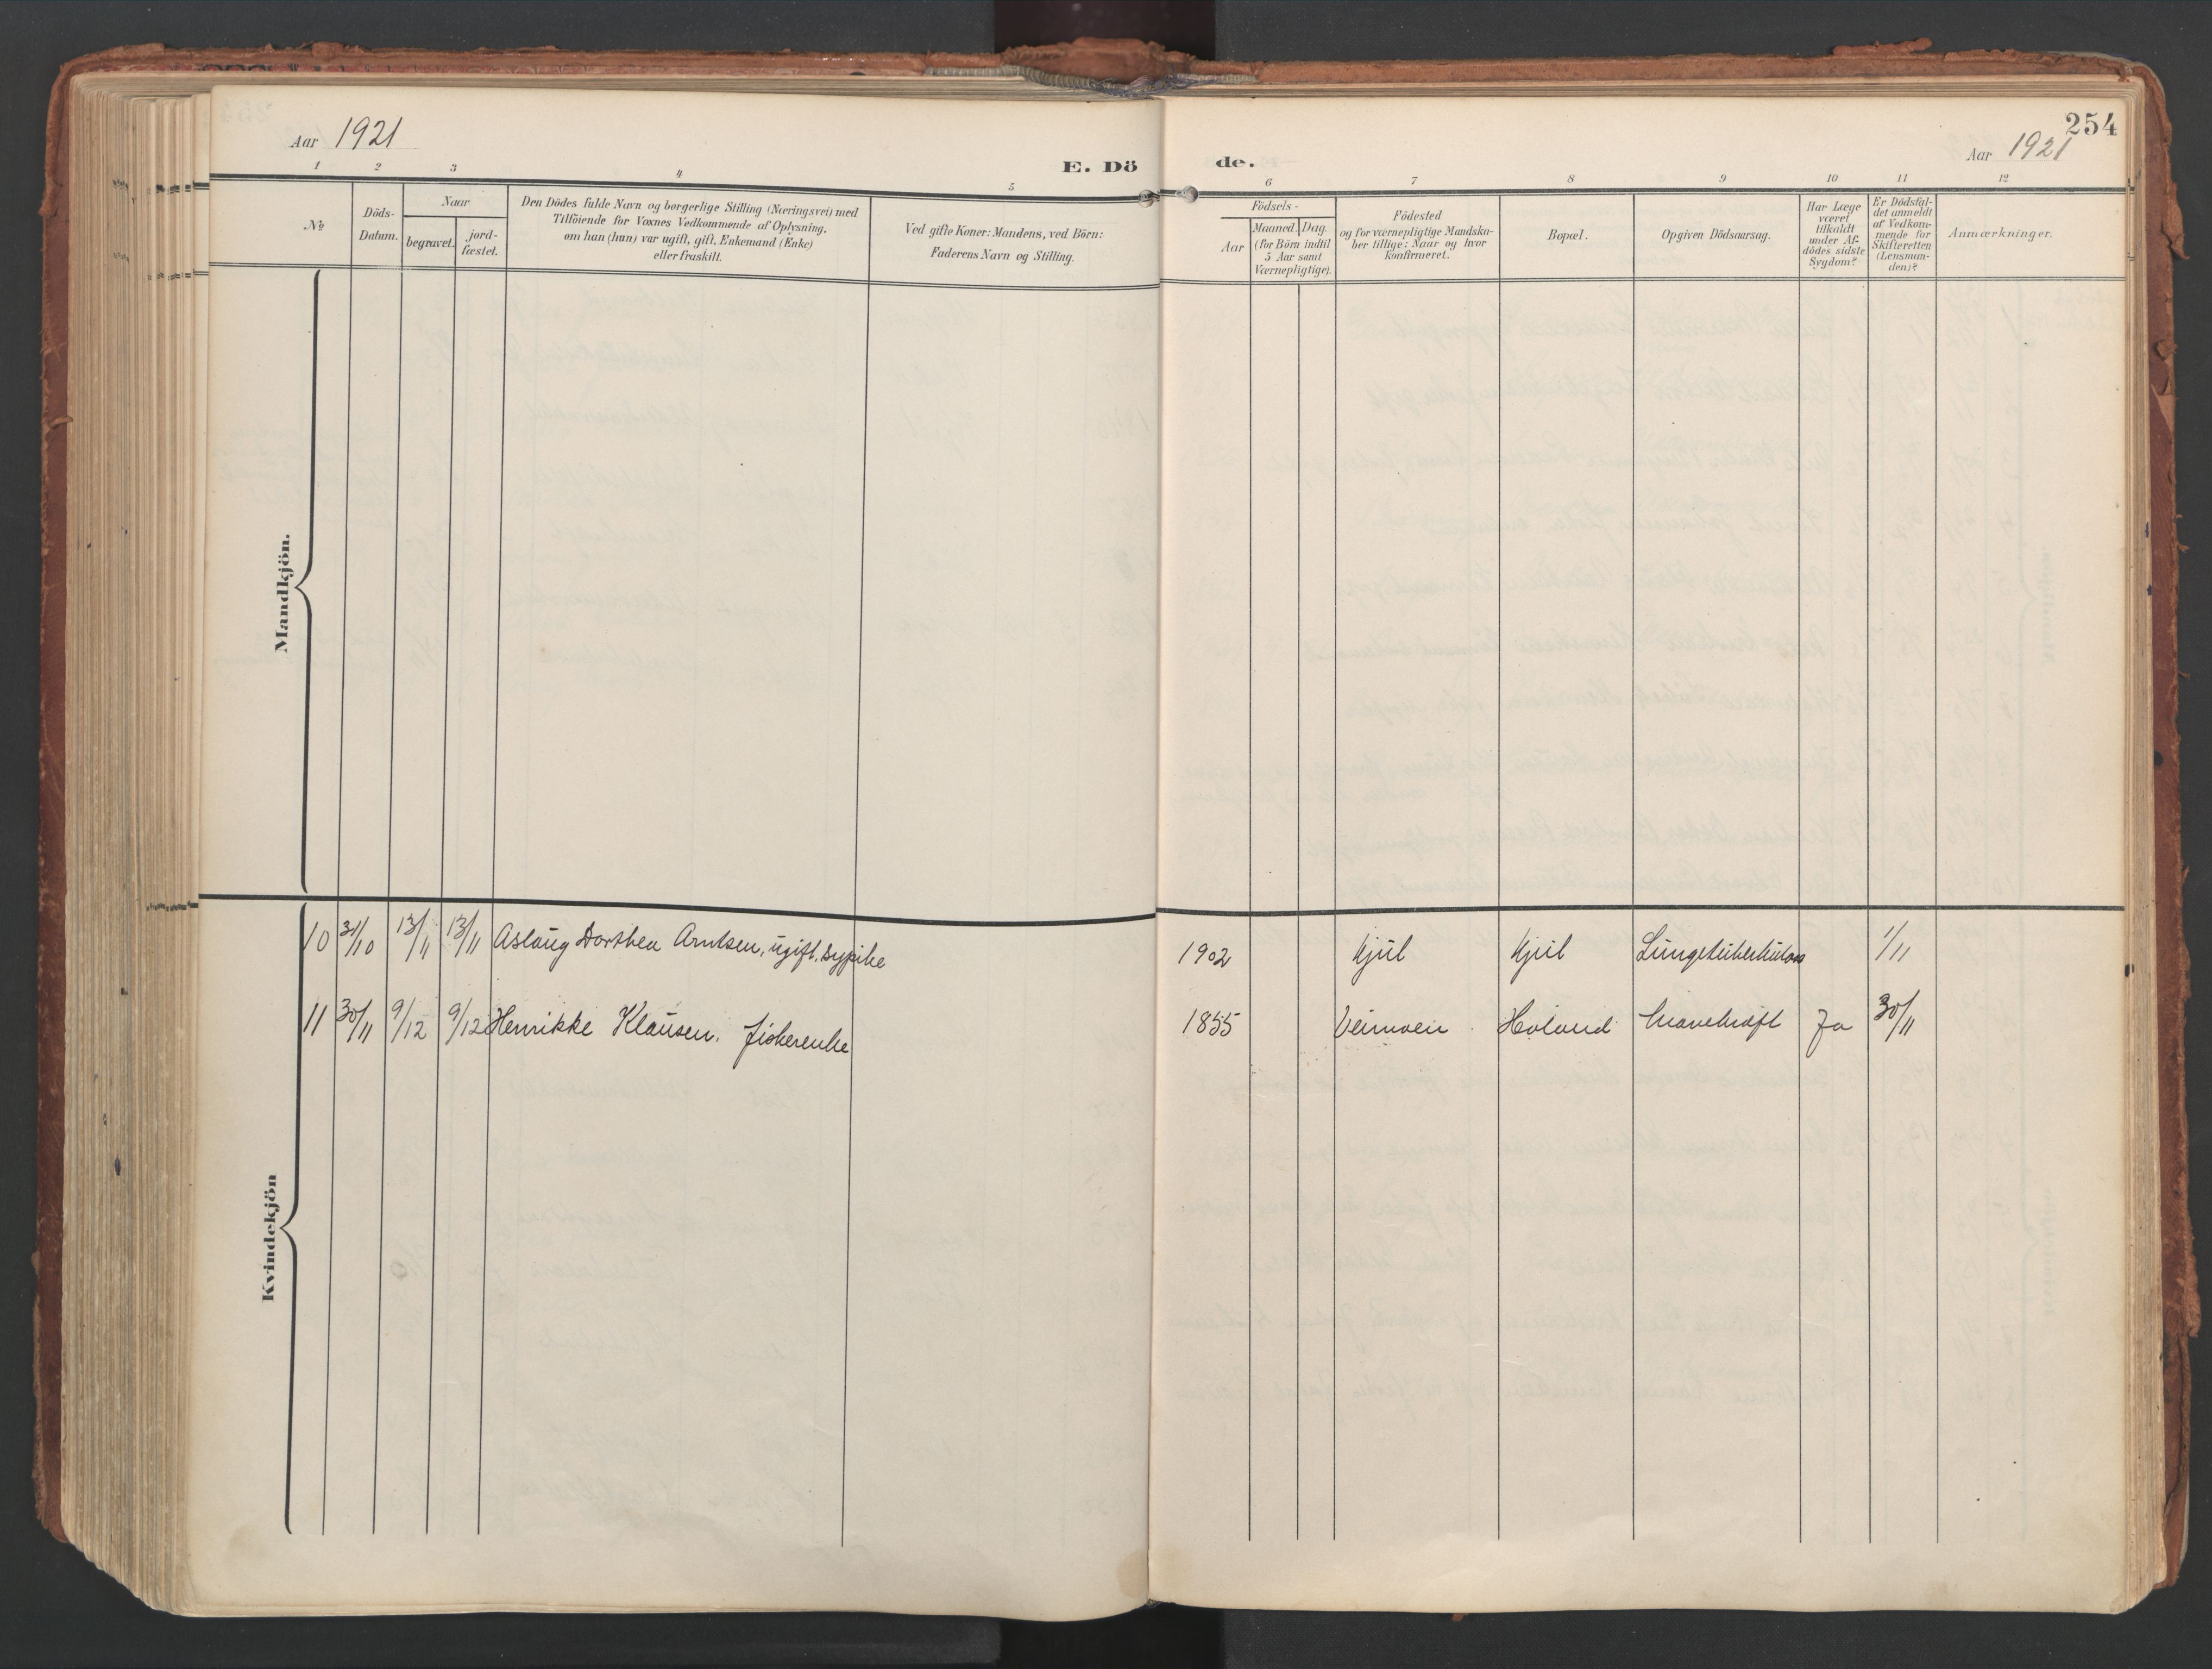 254
Aar 1921
Aar 1921
E. Dö
de.
1 2 3 4 5 6 7 8 9 10 11 12
№
Döds-
Datum.
Naar
begravet.
jord-
fæstet.
Den Dödes fulde Navn og borgerlige Stilling (Næringsvei) med
Tilföiende for Voxnes Vedkommende af Oplysning,
om han (hun) var ugift, gift, Enkemand (Enke)
eller fraskilt.
Ved gifte Koner: Mandens, ved Börn:
Faderens Navn og Stilling.
Födsels-
Aar
Maaned. Dag.
(for Börn indtil
5 Aar samt
Værnepligtige).
Födested
og for værnepligtige Mandska-
ber tillige: Naar og hvor
konfirmeret.
Bopæl.
Opgiven Dödsaarsag.
Har Læge
været
tilkaldt
under Af-
dödes sidste
Sygdom?
Er Dödsfal-
det anmeldt
af Vedkom-
mende for
Skifteretten
(Lensman-
den)?
Anmærkninger.
Mandkjön.
Kvindekjön
10 31/10 13/11 13/11 Aslaug Dorthea Arntsen, ugift, sypike 1902 Kjul Kjul Lungetuberkulose 1/11
11 30/11 9/12 9/12 Henrikke Klausen. fiskerenke 1855 Holand Mavekræft Ja 30/11